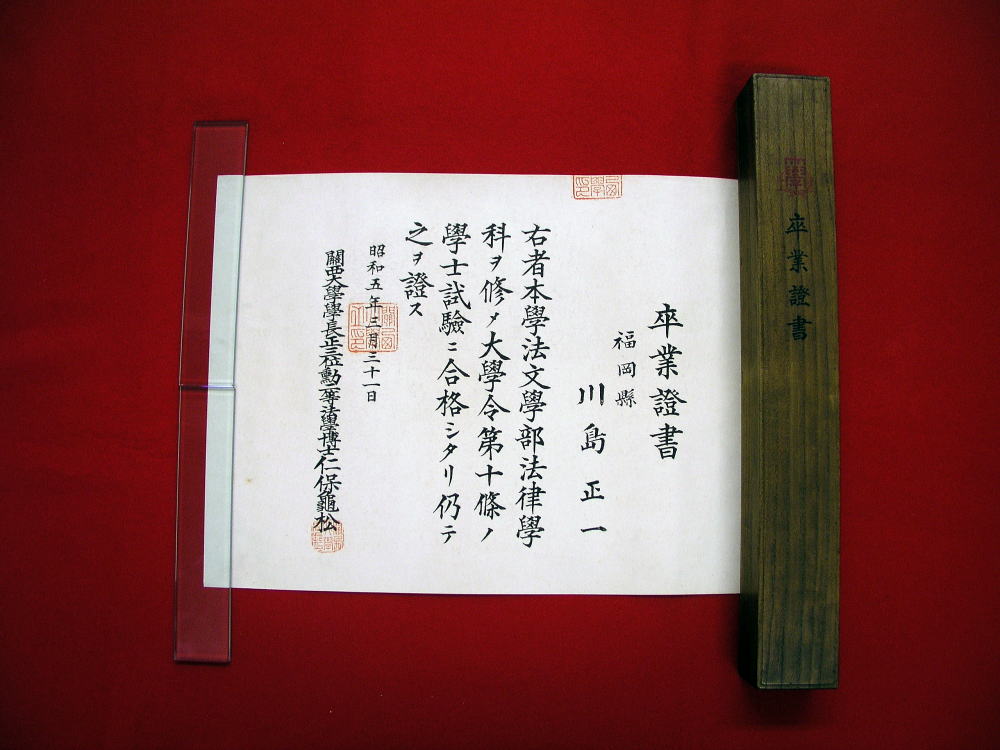 卒業證書
卒業證書
福岡縣
川島正一
右者本學法文學部法律學
科ヲ修メ大學令第十條ノ
學士試驗ニ合格シタリ仍テ
之ヲ證ス
昭和五年三月三十一日
關西大學學長正三位勳二等法學博士仁保龜松